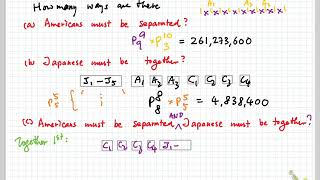 How many ways are there
(a) Americans must be separated?
x x x x x x x x x
P 9 9 x P 10 3 = 261,273,600
(b) Japanese must be together?
J1-J5 A1 A2 A3 C1 C2 C3 C4
P 5 5 { P 8 8 x P 5 5 = 4,838,400
AND
(c) Americans must be separated, Japanese must be together?
Together 1st:
C1 C2 C3 C4 J1-